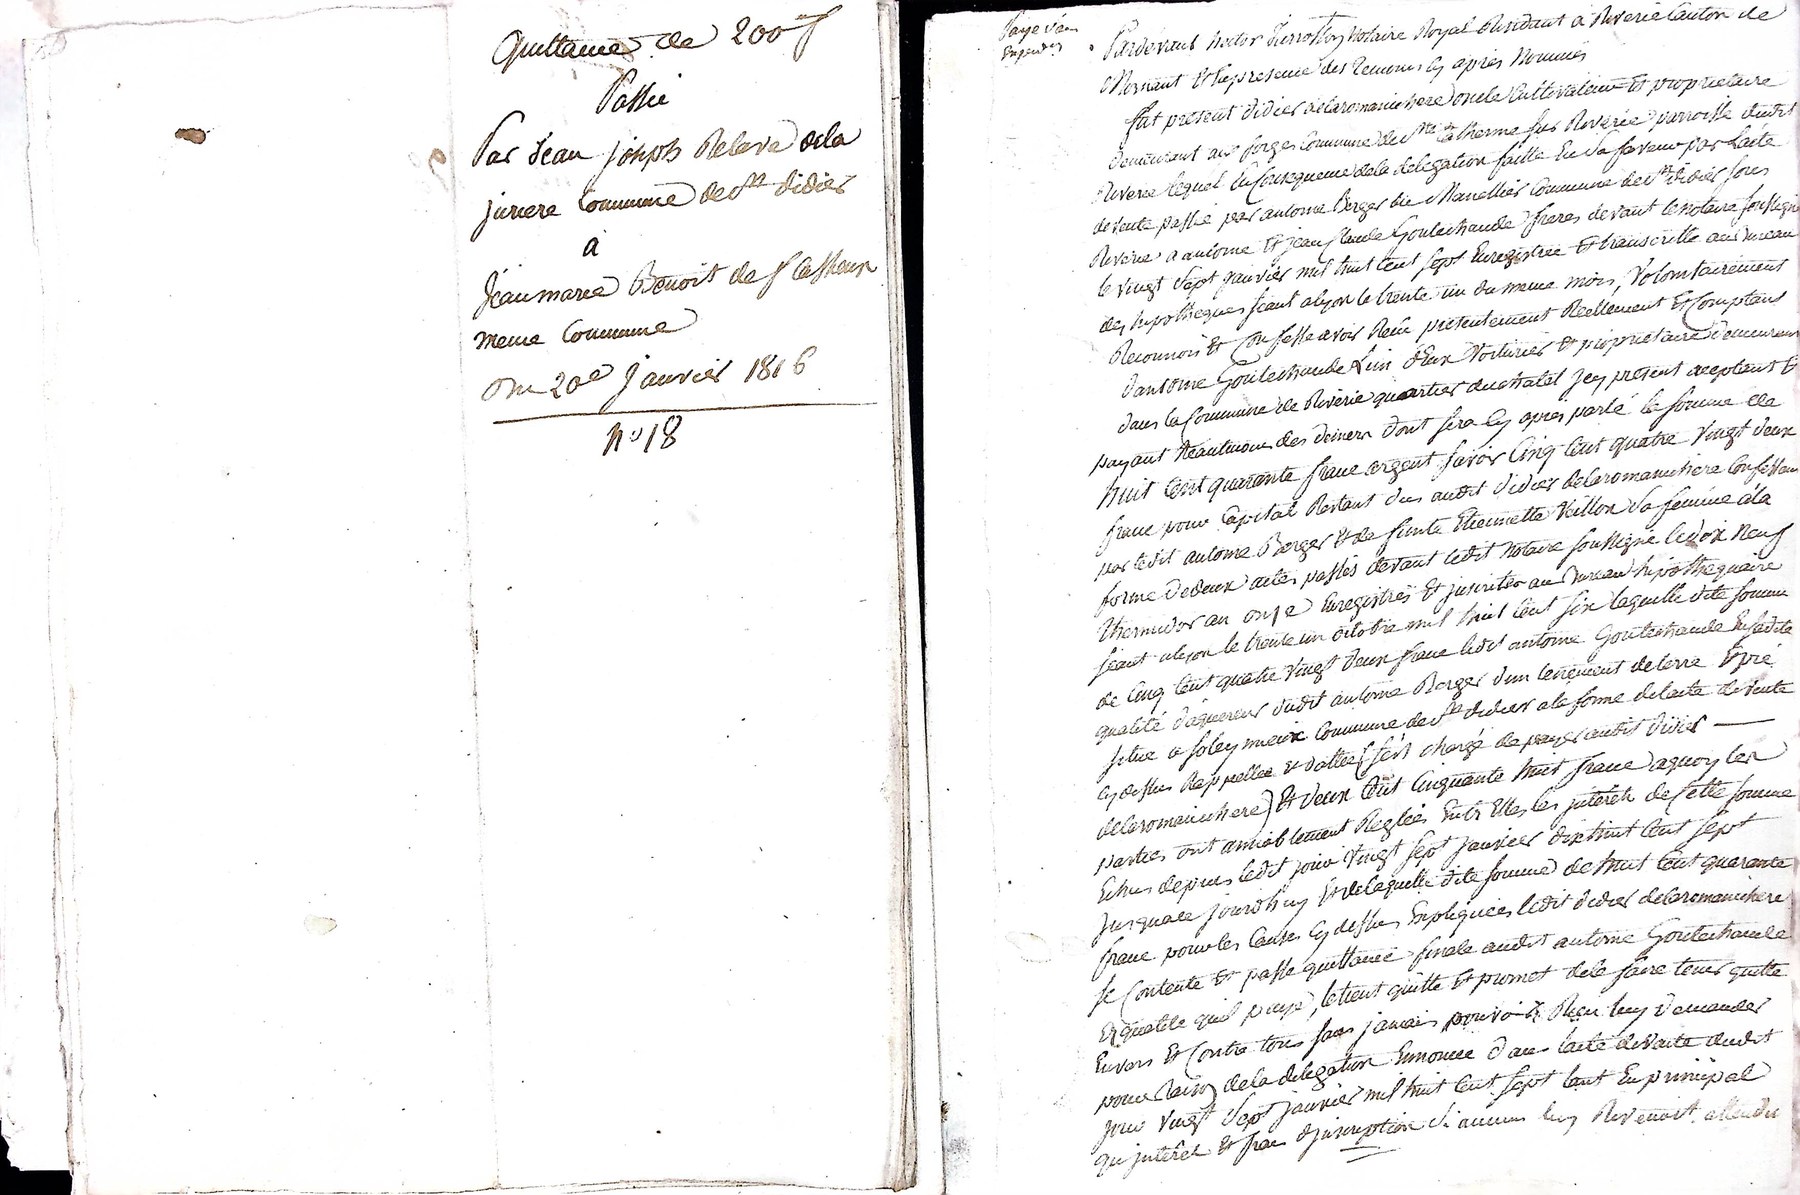 Quittance de 200 f
Passée
Par Jean joseph Relave de la
juriere Commune de St didier
a
Jean marie Benoit de
meme Commune
Du 20e Janvier 1816
n° 18
Pardevant hector notaire Royal Residant a Riverie Canton de
Mornant Et En presence des Temoins cy après Nommés
fut present didier delaromanichere oncle Cultivateur Et proprietaire
demeurant aux forges Commune de Ste Catherine sur Riverie parroisse dudit
Riverie lequel En Consequence de la delegation faitte En sa faveur par L'acte
de vente passé par antoine Berger du Commune de St didier sous
Riverie a antoine Et jean Claude Goutechaude freres devant le notaire soussigné
le vingt sept janvier mil huit Cent sept Enregistrée Et transcritte au Bureau
des hipotheques séant a lyon le trente un du meme mois, Volontairement
Reconnois Et Confesse avoir Reçu presentement Reellement Et Comptant
d'antoine Goutechaude L'un d'Eux Voiturier Et proprietaire demeurant
dans la Commune de Riverie quartier du chatel Icy present acceptant Et
payant neantmoins des deniers dont sera cy apres parlé la somme de
huit Cent quarante franc argent savoir Cinq Cent quatre vingt deux
franc pour Capital Restant dus audit didier delaromanichere Confessant
par ledit antoine Berger Et de funte Etiennette Veillon sa femme a la
forme de deux actes passés devant ledit notaire soussigné le dix neuf
thermidor an onze Enregistrés Et inscrites au Bureau hipothequaire
séant a lyon le trente un octobre mil huit Cent six laquelle dite somme
de Cinq Cent quatre vingt deux franc ledit antoine Goutechaude En sadite
qualité d'aquereur dudit antoine Berger d'un tenement de terre Et pré
situé a soleymieux Commune de St didier a la forme de l'acte de vente
cy dessus Rappellee Et dattee (s'est chargé de payer audit didier
delaromanichere) Et deux Cent Cinquante huit franc a quoy les
parties ont amiablement Reglées Entr'Elles les interets de Cette somme
Echus depuis ledit jour vingt sept janvier dix huit Cent sept
Jusqua ce jourdhuy Et de laquelle dite somme de huit Cent quarante
franc pour les Causes cy dessus Expliquées ledit didier delaromanichere
se Contente Et passe quittance finale audit antoine Goutechaude
En qualité quil paye, le tient quitte Et promet de le faire tenir quitte
Envers Et Contre tous sans jamais pouvoir Rien luy demander
pour Raison de la delegation Enoncée dans l'acte de vente dudit
jour vingt sept janvier mil huit Cent sept tant En principal
qu'interet Et frais d'inscription si aucun luy Revenoit attendu